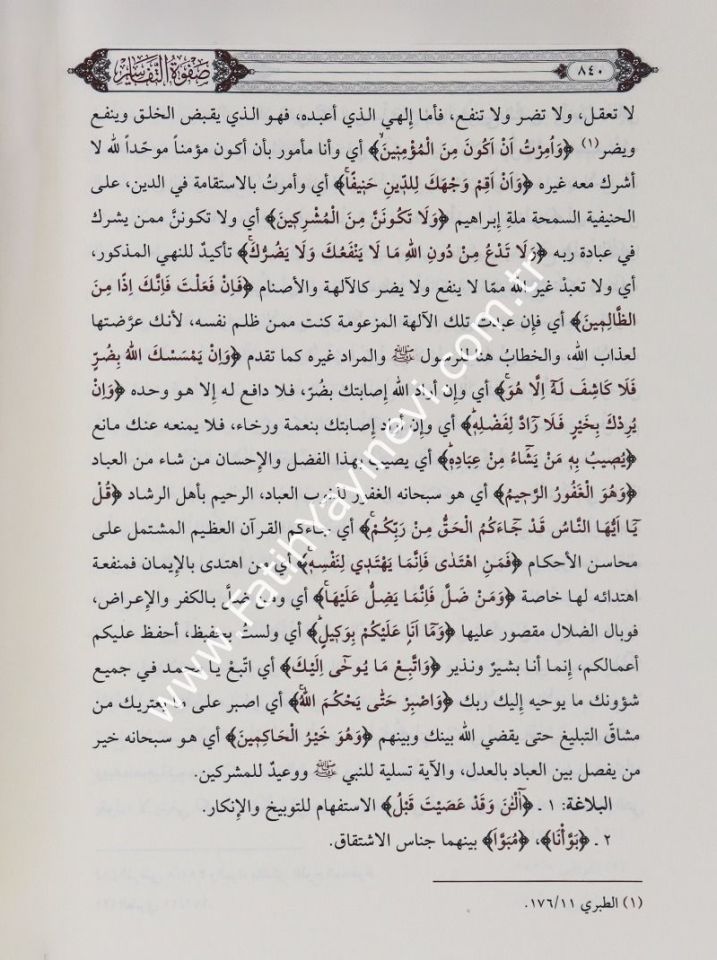 صفوة التفاسير
٨٤٠
لا تعقل، ولا تضر ولا تنفع، فأما إلهي الذي أعبده، فهو الذي يقبض الخلق وينفع
ويضر(١) ﴿وَاُمِرْتُ اَنْ اَكُونَ مِنَ الْمُؤْمِنِينَ﴾ أي وأنا مأمور بأن أكون مؤمناً موحّداً لله لا
أشرك معه غيره ﴿وَاَنْ اَقِمْ وَجْهَكَ لِلدّ۪ينِ حَن۪يفًاۚ﴾ أي وأمرتُ بالاستقامة في الدين، على
الحنيفية السمحة ملةِ إبراهيم ﴿وَلَا تَكُونَنَّ مِنَ الْمُشْرِك۪ينَ﴾ أي ولا تكوننَّ ممن يشرك
في عبادة ربه ﴿وَلَا تَدْعُ مِنْ دُونِ اللهِ مَا لَا يَنْفَعُكَ وَلَا يَضُرُّكَۚ﴾ تأكيدٌ للنهي المذكور،
أي ولا تعبدْ غير الله ممّا لا ينفع ولا يضر كالآلهة والأصنام ﴿فَاِنْ فَعَلْتَ فَاِنَّكَ اِذًا مِنَ
الظَّالِم۪ينَ﴾ أي فإن عبدت تلك الآلهة المزعومة كنت ممن ظلم نفسه، لأنك عرَّضتها
لعذاب الله، والخطابُ هنا للرسول ﷺ والمراد غيره كما تقدم ﴿وَاِنْ يَمْسَسْكَ اللهُ بِضُرٍّ
فَلَا كَاشِفَ لَهُٓ اِلَّا هُوَۚ﴾ أي وإن أراد الله إصابتك بضُرّ، فلا دافع له إلا هو وحده ﴿وَاِنْ
يُرِدْكَ بِخَيْرٍ فَلَا رَادَّ لِفَضْلِه۪ۜ﴾ أي وإن أراد إصابتك بنعمة ورخاء، فلا يمنعه عنك مانع
﴿يُص۪يبُ بِه۪ مَنْ يَشَٓاءُ مِنْ عِبَادِه۪ۜ﴾ أي يصيب بهذا الفضل والإحسان من شاء من العباد
﴿وَهُوَ الْغَفُورُ الرَّح۪يمُ﴾ أي هو سبحانه الغفور لذنوب العباد، الرحيم بأهل الرشاد ﴿قُلْ
يَٓا اَيُّهَا النَّاسُ قَدْ جَٓاءَكُمُ الْحَقُّ مِنْ رَبِّكُمْۚ﴾ أي جاءكم القرآن العظيم المشتمل على
محاسن الأحكام ﴿فَمَنِ اهْتَدٰى فَاِنَّمَا يَهْتَد۪ي لِنَفْسِه۪ۚ﴾ أي من اهتدى بالإيمان فمنفعة
اهتدائه لها خاصة ﴿وَمَنْ ضَلَّ فَاِنَّمَا يَضِلُّ عَلَيْهَاۚ﴾ أي ومن ضلَّ بالكفر والإعراض،
فوبال الضلال مقصور عليها ﴿وَمَٓا اَنَا۬ عَلَيْكُمْ بِوَك۪يلٍۜ﴾ أي ولستُ بحفيظ، أحفظ عليكم
أعمالكم، إنما أنا بشيرٌ ونذير ﴿وَاتَّبِعْ مَا يُوحٰٓى اِلَيْكَ﴾ أي اتّبعْ يا محمد في جميع
شؤونك ما يوحيه إليك ربك ﴿وَاصْبِرْ حَتّٰى يَحْكُمَ اللهُۚ﴾ أي اصبر على ما يعتريك من
مشاقّ التبليغ حتى يقضي الله بينك وبينهم ﴿وَهُوَ خَيْرُ الْحَاكِم۪ينَ﴾ أي هو سبحانه خير
من يفصل بين العباد بالعدل، والآية تسلية للنبي ﷺ ووعيدٌ للمشركين.
البلاغة: ١ ـ ﴿آٰلْـٰٔنَ وَقَدْ عَصَيْتَ قَبْلُ﴾ الاستفهام للتوبيخ والإنكار.
٢ ـ ﴿بَوَّأْنَا﴾، ﴿مُبَوَّاَ﴾ بينهما جناس الاشتقاق.
(١) الطبري ١٧٦/١١.
www.FatihYayinevi.com.tr